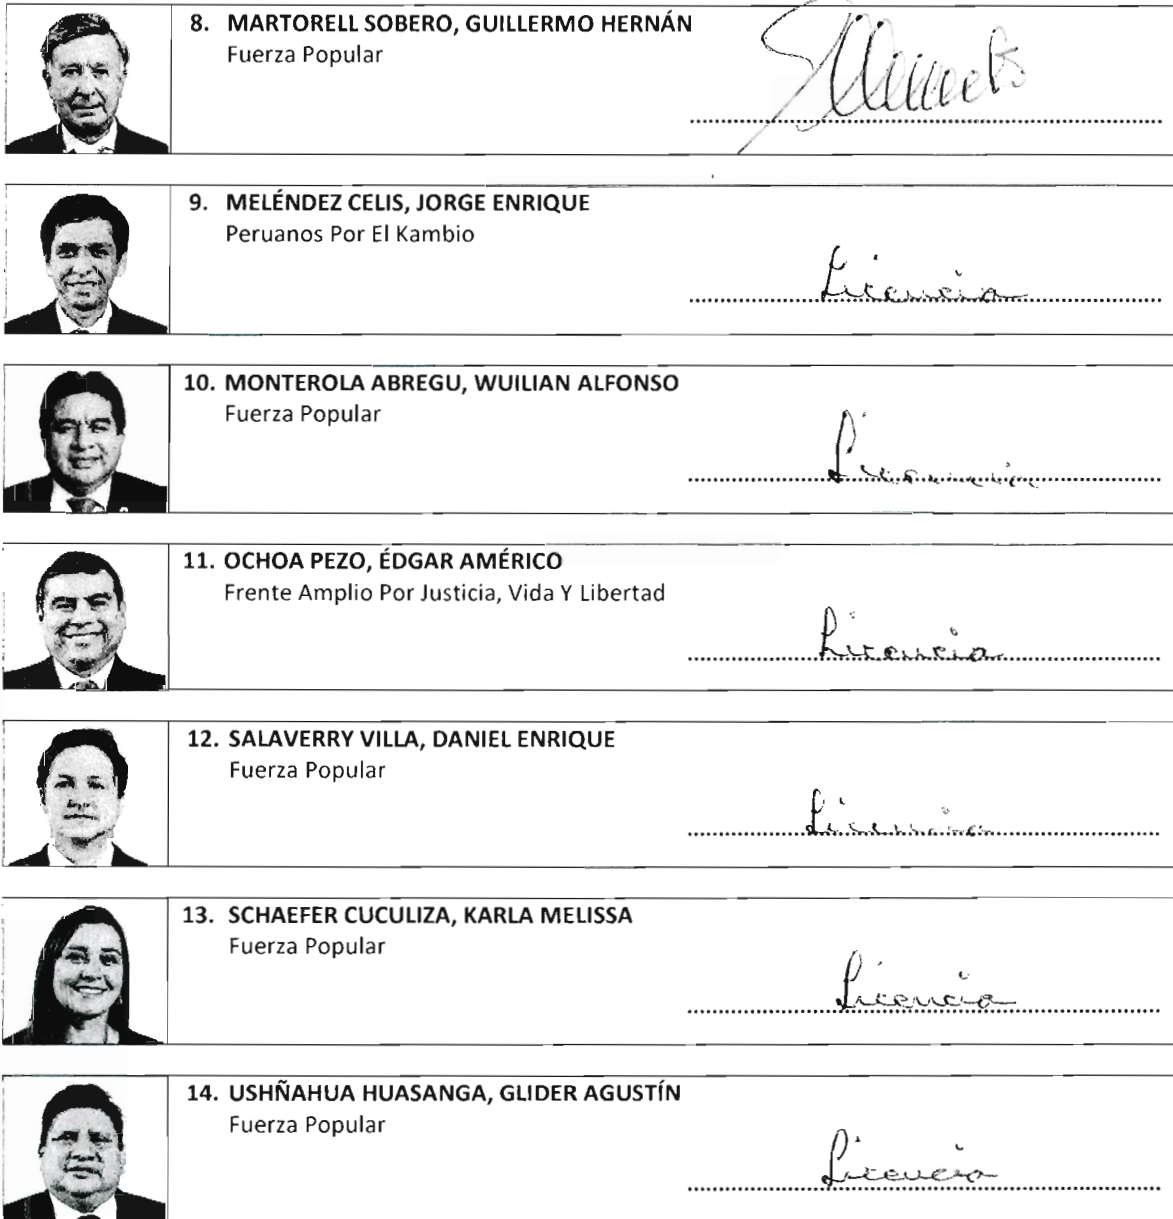 8. MARTORELL SOBERO, GUILLERMO HERNÁN
Fuerza Popular
9. MELÉNDEZ CELIS, JORGE ENRIQUE
Peruanos Por El Kambio
Licencia
10. MONTEROLA ABREGU, WUILIAN ALFONSO
Fuerza Popular
Licencia
11. OCHOA PEZO, ÉDGAR AMÉRICO
Frente Amplio Por Justicia, Vida Y Libertad
Licencia
12. SALAVERRY VILLA, DANIEL ENRIQUE
Fuerza Popular
Licencia
13. SCHAEFER CUCULIZA, KARLA MELISSA
Fuerza Popular
Licencia
14. USHÑAHUA HUASANGA, GLIDER AGUSTÍN
Fuerza Popular
Licencia